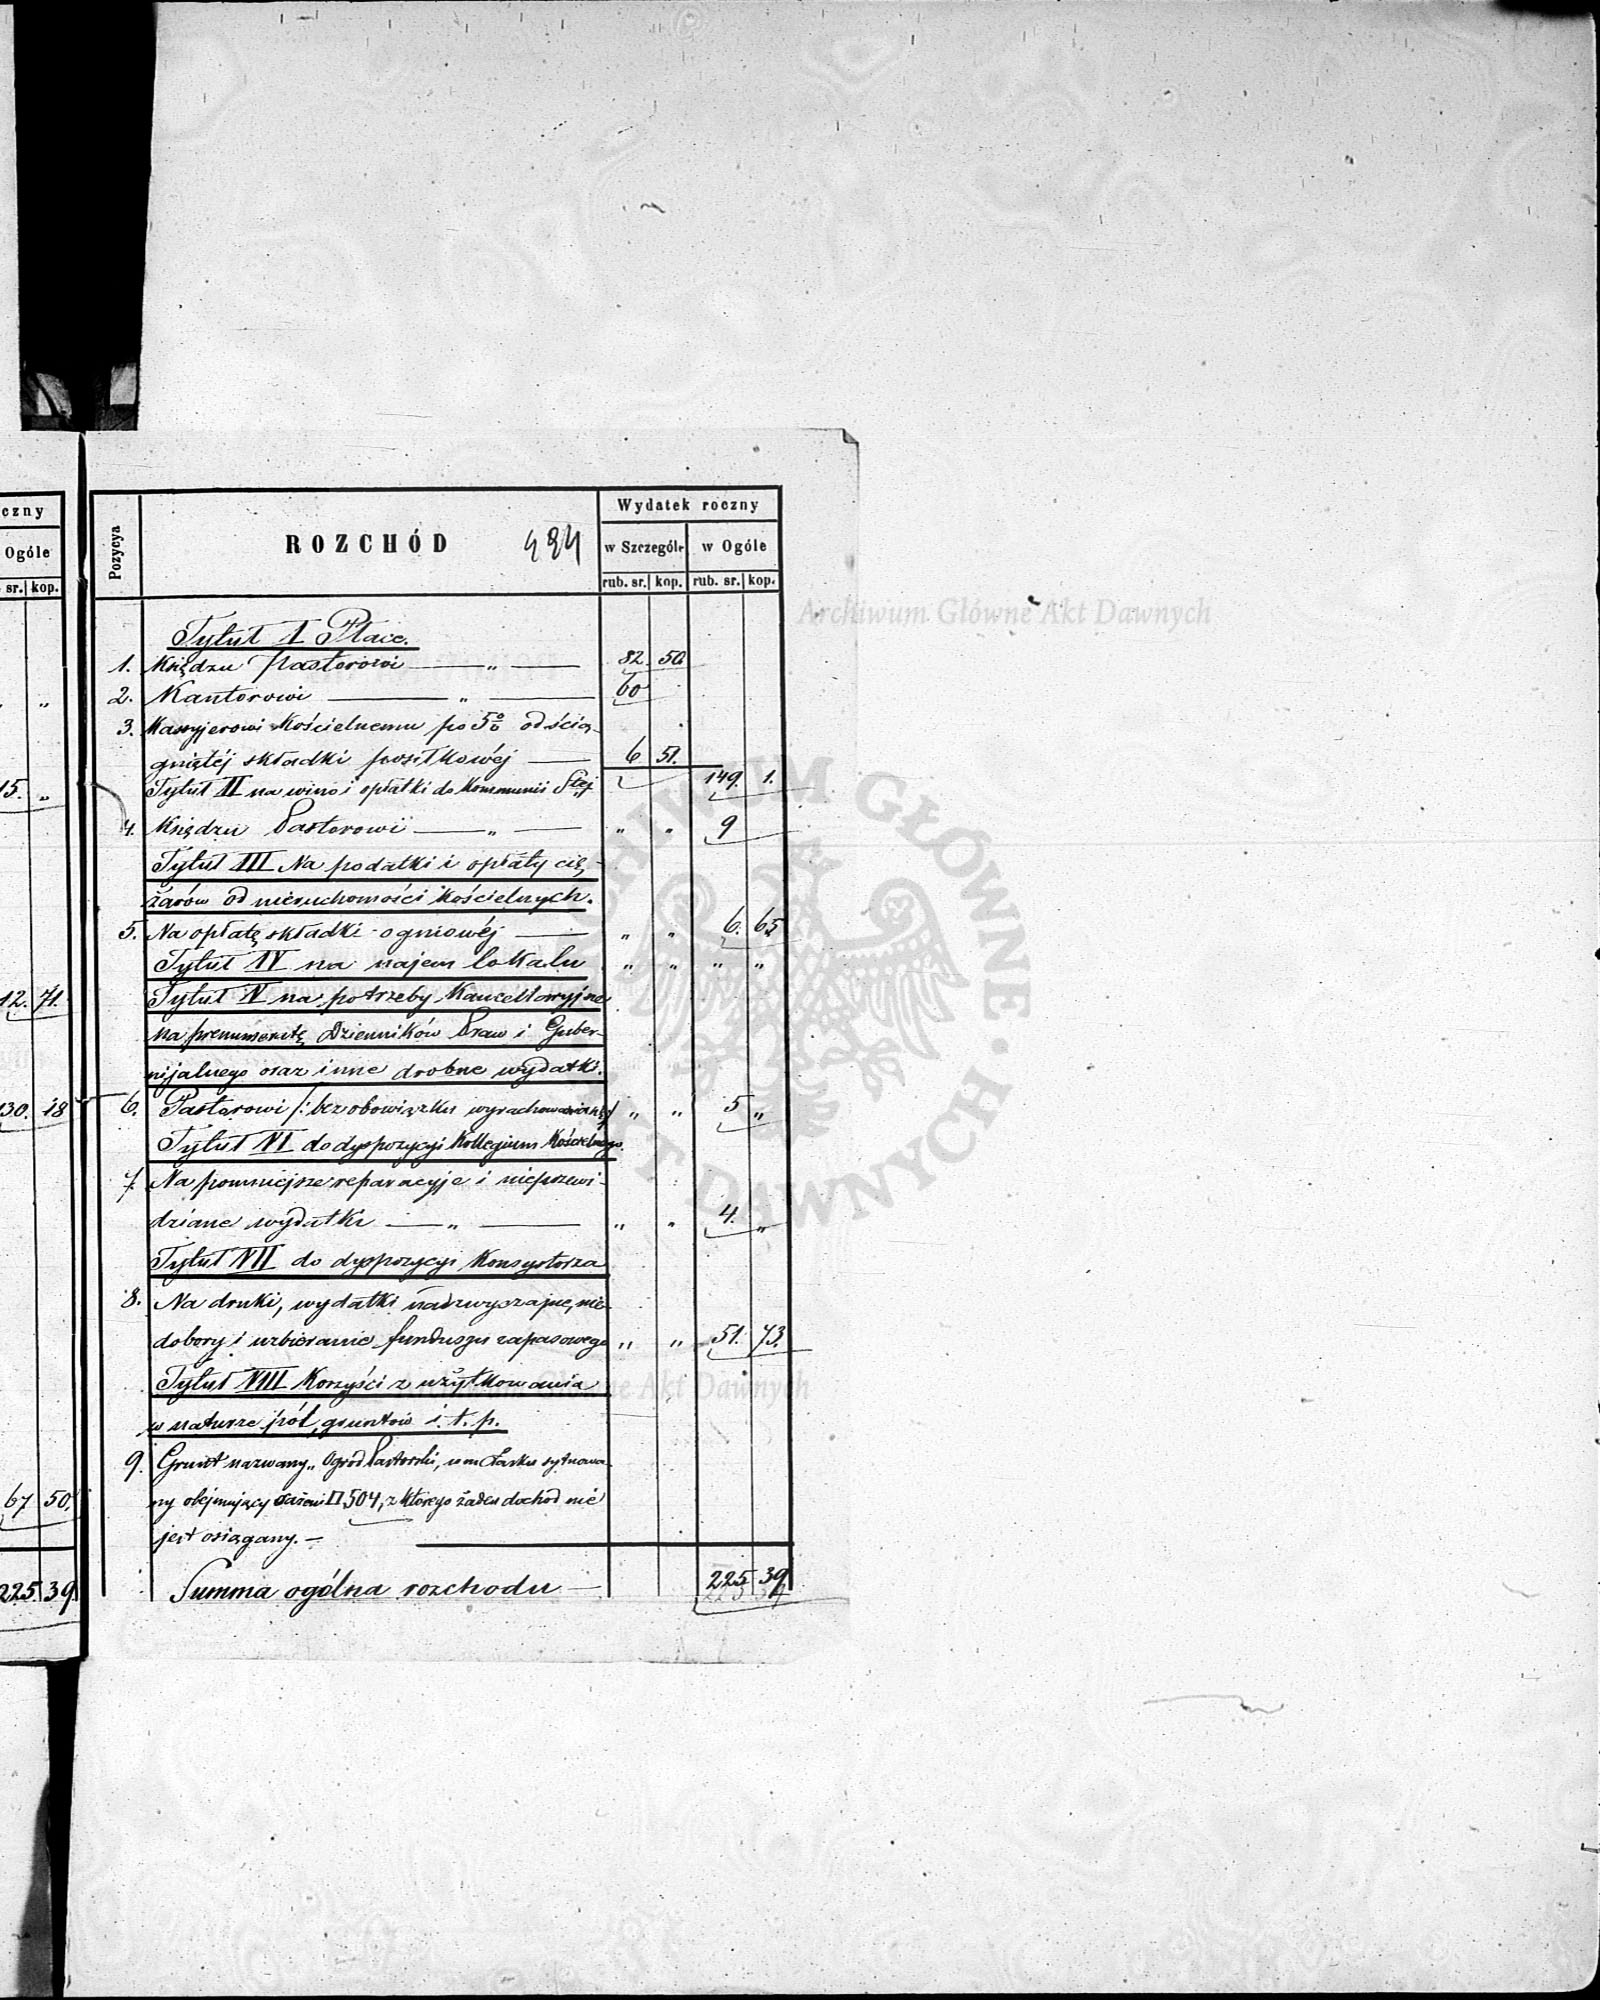 czny
Ogóle
sr. kop.
„
15. „
12. 71.
130. 18
67 50.
225. 39.
Pozycya
ROZCHÓD 484
Wydatek roczny
w Szczególe w Ogóle
rub. sr. kop. rub. sr. kop.
Tytuł I Płace.
1. Księdzu Pastorowi — „ — 82. 50
2. Kantorowi — „ — 60
3. Kassyjerowi Kościelnemu po 5% od ścią-
gniętéj składki posiłkowéj — 6 51.
Tytuł II na wino i opłatki do Kommunii Stéj 149. 1.
4. Księdzu Pastorowi — „ — „ „ 9
Tytuł III Na podatki i opłaty cię-
żarów od nieruchomości Kościelnych.
5. Na opłatę składki ogniowéj — „ „ 6. 65
Tytuł IV na najem lokalu „ „ „ „
Tytuł V na potrzeby Kancellaryjne
na prenumeratę Dzienników Praw i Guber-
nijalnego oraz inne drobne wydatki.
6. Pastorowi /: bez obowiązku wyrachowania się :/ „ „ 5 „
Tytuł VI do dyspozycyi Kollegium Kościelnego.
7. Na pomniejsze reparacyje i nieprzewi-
dziane wydatki — „ — „ „ 4. „
Tytuł VII do dyspozycyi Konsystorza
8. Na druki, wydatki nadzwyczajne, nie-
dobory i uzbieranie funduszu zapasowego „ „ 51. 73.
Tytuł VIII Korzyści z użytkowania
w naturze pól, gruntów i. t. p.
9. Grunt nazwany „Ogród Pastorski, w m. Łasku sytuowa-
ny obejmujący sażeni □ 504, z którego żaden dochód nie
jest osiągany. —
Summa ogólna rozchodu — 225 39
Archiwum Główne Akt Dawnych
ARCHIWUM GŁÓWNE AKT DAWNYCH